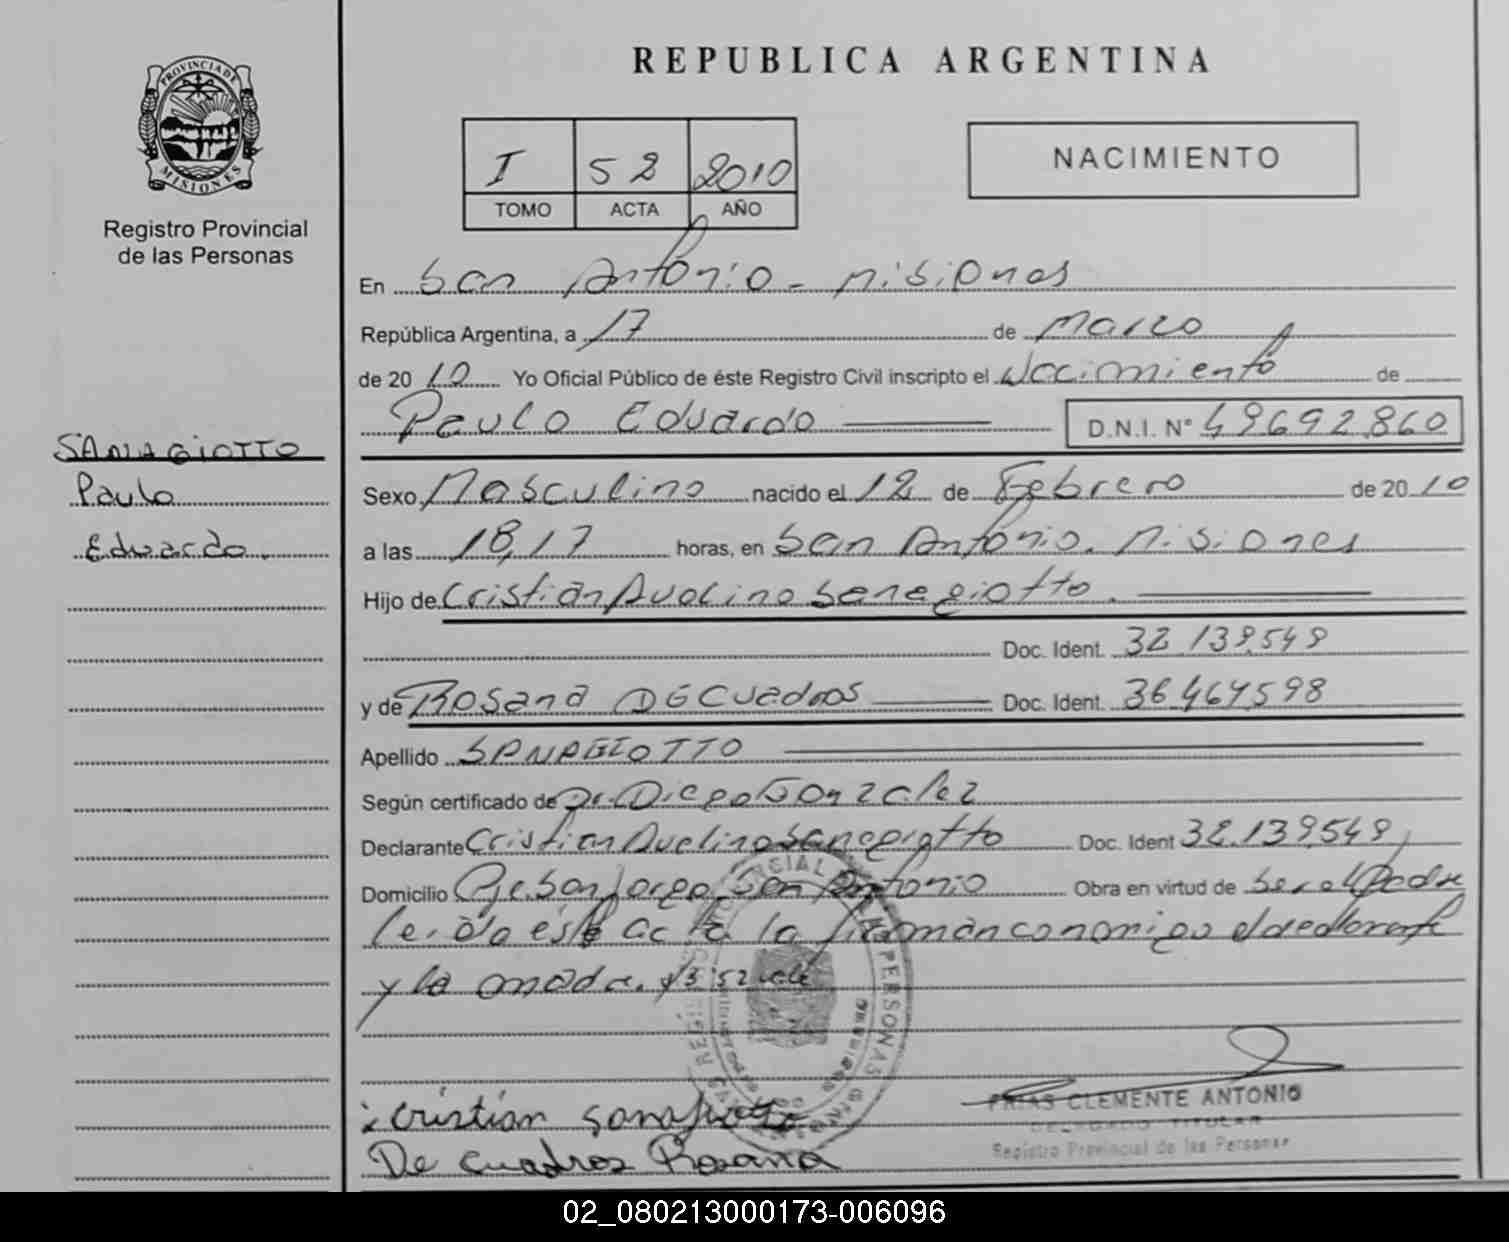 REPUBLICA ARGENTINA
PROVINCIA DE
MISIONES
Registro Provincial
de las Personas
I 52 2010
TOMO ACTA AÑO
NACIMIENTO
En San Antonio - Misiones
República Argentina, a 17 de Marzo
de 20 10 Yo Oficial Público de éste Registro Civil inscripto el Nacimiento de
Paulo Eduardo D.N.I. Nº 49692.860
SANAGIOTTO
Paulo
Eduardo.
Sexo Masculino nacido el 12 de Febrero de 20 10
a las 18,17 horas, en San Antonio. Misiones
Hijo de Cristian Avelino Sanagiotto.
Doc. Ident. 32.139.549
y de Rosana DE Cuadros Doc. Ident. 36.464.598
Apellido SANAGIOTTO
Según certificado de Dr. Diego Gonzalez
Declarante Cristian Avelino Sanagiotto Doc. Ident 32.139.549
Domicilio Pje. San Jorge. San Antonio Obra en virtud de ser el Padre
leida ésta acta la firman conmigo el declarante
y la madre. 52 vale
PERSONAS
Cristian Sanagiotto
De Cuadros Rosana
FRIAS CLEMENTE ANTONIO
DELEGADO TITULAR
Registro Provincial de las Personas
02_080213000173-006096